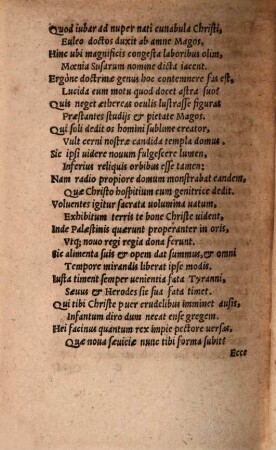 Quod iubar ad nuper nati cunabula Christi,
Euleo doctos duxit ab amne Magos,
Hinc ubi magnificis congesta laboribus olim,
Mœnia Susarum nomine dicta iacent.
Ergòne doctrinæ genus hoc contemnere fas est,
Lucida cum motu quod docet astra suo?
Quis neget æthereas oculis lustrasse figuras
Præstantes studijs & pietate Magos.
Qui soli dedit os homini sublime creator,
Vult cerni nostræ candida templa domus.
Sic ipsi uidere nouum fulgescere lumen,
Inferius reliquis orbibus esse tamen:
Nam radio propiore domum monstrabat eandem,
Quæ Christo hospitium cum genitrice dedit.
Voluentes igitur sacrata uolumina uatum,
Exhibitum terris te bone Christe uident,
Inde Palæstinis quærunt properanter in oris,
Vtq; nouo regi regia dona ferunt.
Sic alimenta suis & opem dat summus, & omni
Tempore mirandis liberat ipse modis.
Iusta timent semper uenientia fata Tyranni,
Sæuus & Herodes sic sua fata timet.
Qui tibi Christe puer crudelibus imminet ausis,
Infantum diro dum necat ense gregem.
Hei facinus quantum rex impie pectore uersas,
Quæ noua sæuiciæ nunc tibi forma subit?
Ecce